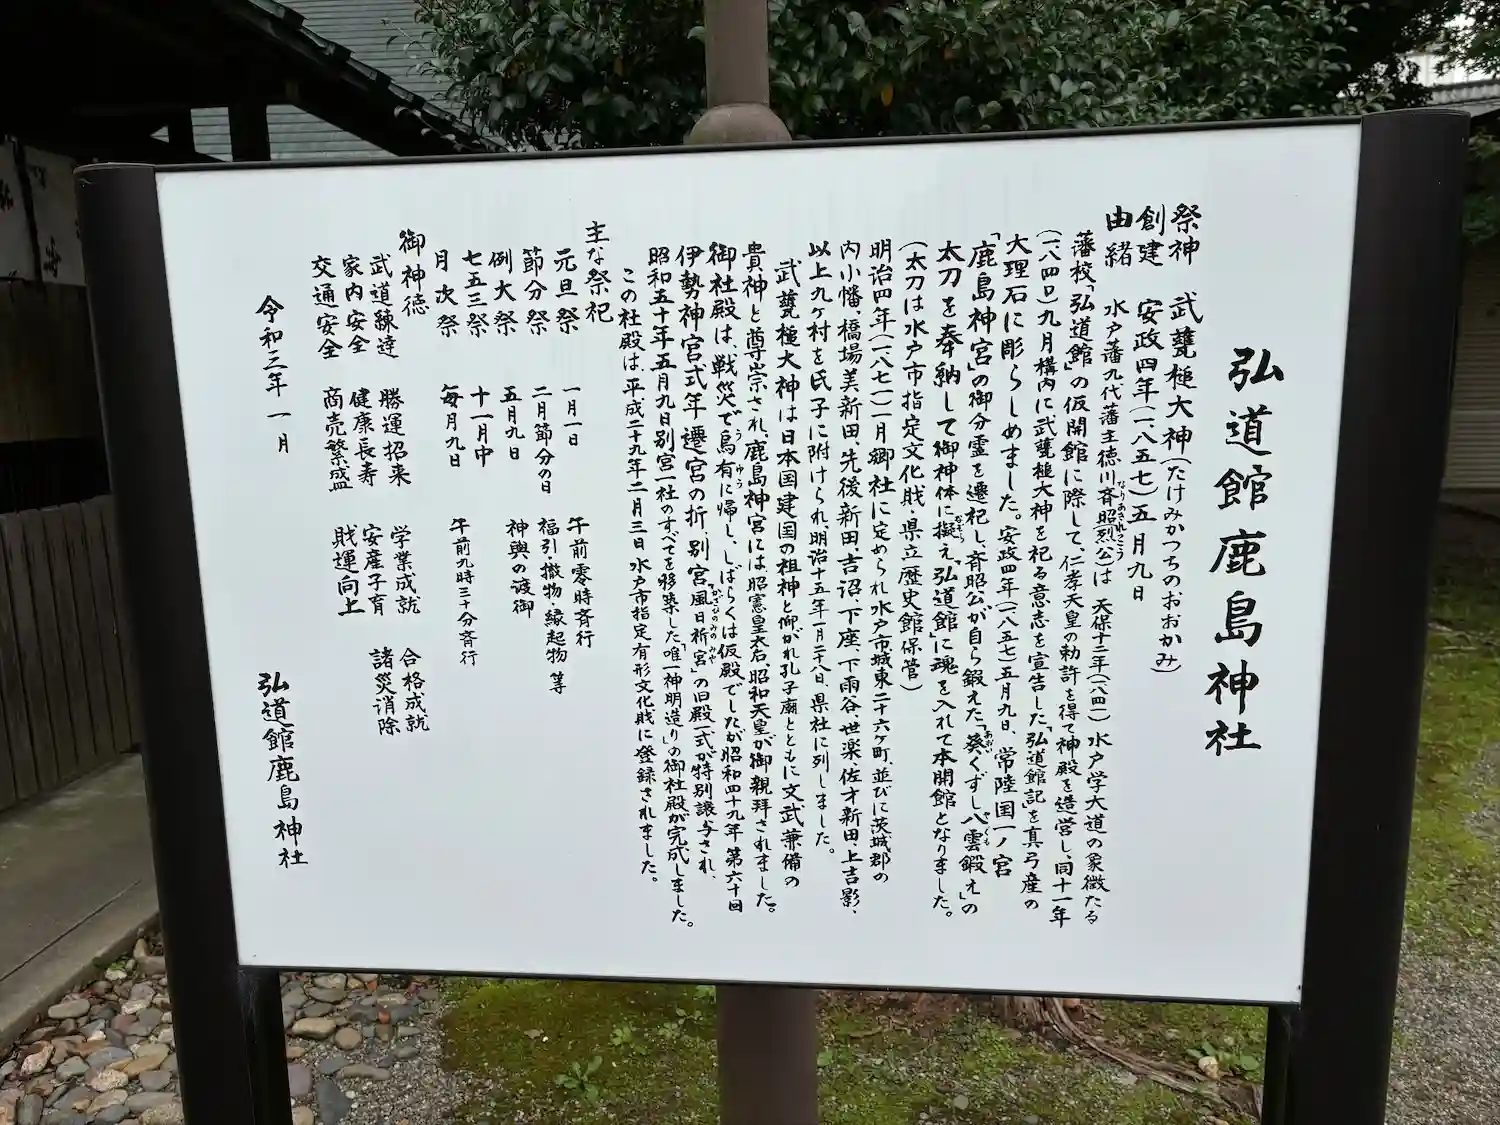 弘道館鹿島神社
祭神　武甕槌大神(たけみかつちのおおかみ)
創建　安政四年(一八五七)五月九日
由緒　水戸藩九代藩主徳川斉昭(烈公)は　天保十二年(一八四一)水戸学大道の象徴たる
藩校「弘道館」の仮開館に際して、仁孝天皇の勅許を得て神殿を造営し、同十一年
(一八四〇)九月構内に武甕槌大神を祀る意志を宣告した「弘道館記」を真弓産の
大理石に彫らしめました。安政四年(一八五七)五月九日、常陸国一ノ宮
「鹿島神宮」の御分霊を遷祀し、斉昭公が自ら鍛えた「葵くずし八雲鍛え」の
太刀を奉納して御神体に擬え「弘道館」に魂を入れて本開館となりました。
(太刀は水戸市指定文化財・県立歴史館保管)
明治四年(一八七一)一月郷社に定められ水戸市城東二十六ヶ町、並びに茨城郡の
内小幡、橋場美新田、先後新田、吉沼、下座、下雨谷、世楽、佐才新田、上吉影、
以上九ヶ村を氏子に附けられ、明治十五年一月二十八日県社に列しました。
武甕槌大神は日本国建国の祖神と仰がれ孔子廟とともに文武兼備の
貴神と尊崇され、鹿島神宮には昭憲皇太后、昭和天皇が御親拝されました。
御社殿は、戦災で烏有に帰し、しばらくは仮殿でしたが昭和四十九年第六十回
伊勢神宮式年遷宮の折、別宮「風日祈宮」の旧殿一式が特別譲与され、
昭和五十年五月九日別宮一社のすべてを移築した「唯一神明造り」の御社殿が完成しました。
この社殿は、平成二十九年二月三日水戸市指定有形文化財に登録されました。
主な祭祀
元旦祭　一月一日　午前零時斉行
節分祭　二月節分の日　福引・撤物・縁起物　等
例大祭　五月九日　神輿の渡御
七五三祭　十一月中
月次祭　毎月九日　午前九時三十分斉行
御神徳
武道錬達　勝運招来　学業成就　合格成就
家内安全　健康長寿　安産子育　諸災消除
交通安全　商売繁盛　財運向上
令和三年一月　弘道館鹿島神社